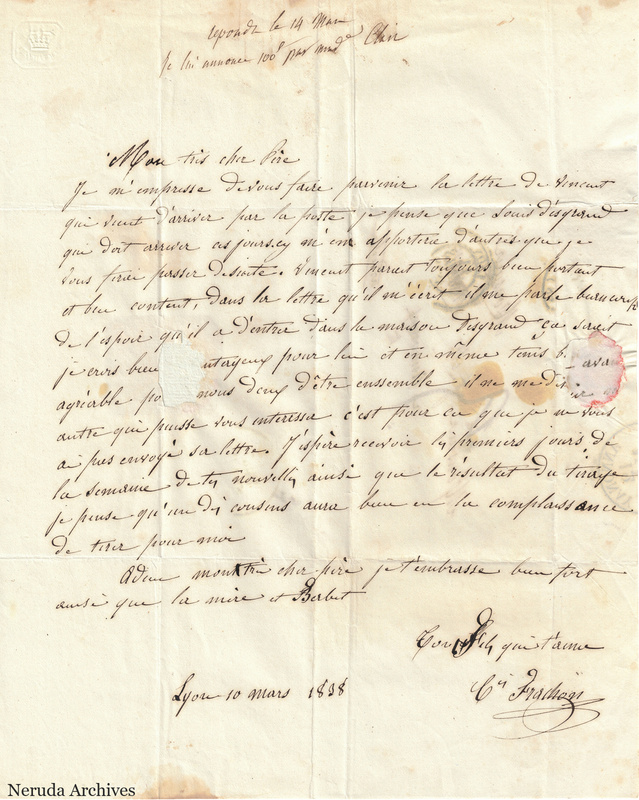 repondu le 14 Mars
Je lui annonce 100f par mde Clair
Mon tris cher Père
Je m'empresse de vous faire parvenir la lettre de Vincent
qui vient d'arriver par la poste je pense que Louis Desgrand
qui doit arriver ces jours cy m'en apportera d'autres que je
vous ferai passer desuite. Vincent parait toujours bien portant
et bien content, dans la lettre qu'il m'écrit il me parle beaucoup
de l'espoir qu'il a d'entrer dans la maison Desgrand ca serait
je crois bien ntageux pour lui et en même tems b
agréable po nous deux d'être ensemble il ne me dit
autre qui puisse vous interesser c'est pour ca que je ne vous
ai pas envoyé sa lettre. J'espère recevoir les premiers jours de
la semaine de tes nouvelles ainsi que le résultat du tirage
je pense qu'un des cousins aura bien eu la complaissance
de tirer pour moi
Adieu mon très cher père je t'embrasse bien fort
ainsi que la mère et Babet
Ton fils qui t'aime
Cis Frachon
Lyon 10 mars 1838
Neruda Archives